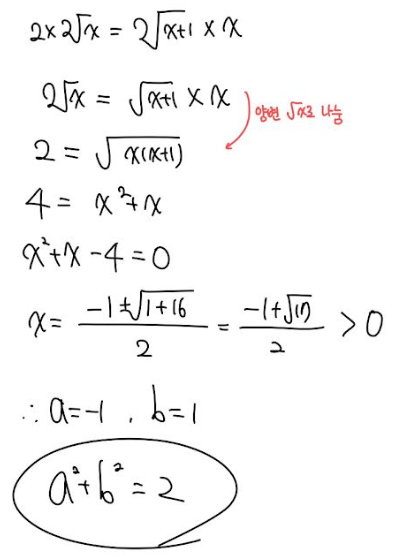 2×2√x = 2√(x+1) × x
2√x = √(x+1) × x
양변 √x로 나눔
2 = √(x(x+1))
4 = x²+x
x²+x-4=0
x = (-1±√(1+16))/2 = (-1+√17)/2 > 0
∴ a=-1, b=1
a²+b²=2